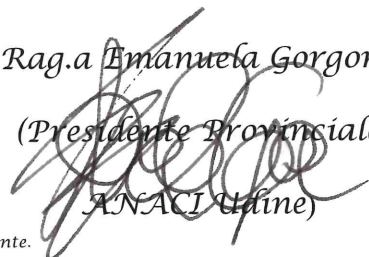 Rag.a Emanuela Gorgon
(Presidente Provinciale
ANACI Udine)
nte.